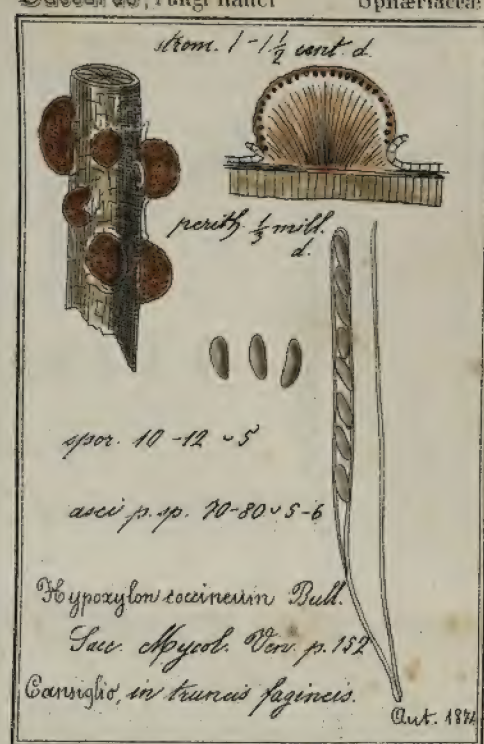 Saccardo, Fungi italici Sphæriaceæ
strom. 1-1½ cent. d.
perith. ⅓ mill.
d.
spor. 10-12 ᴗ 5
asci p. sp. 70-80 ᴗ 5-6
Hypoxylon coccineum Bull.
Sacc. Mycol. Ven. p. 152
Cansiglio, in truncis fagineis.
Aut. 1874